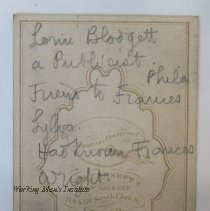 Lorin Blodgett
a Publicist
Phila
Friend to Frances
Sylva.
Had known Frances
Wright.
Working Men's Institute